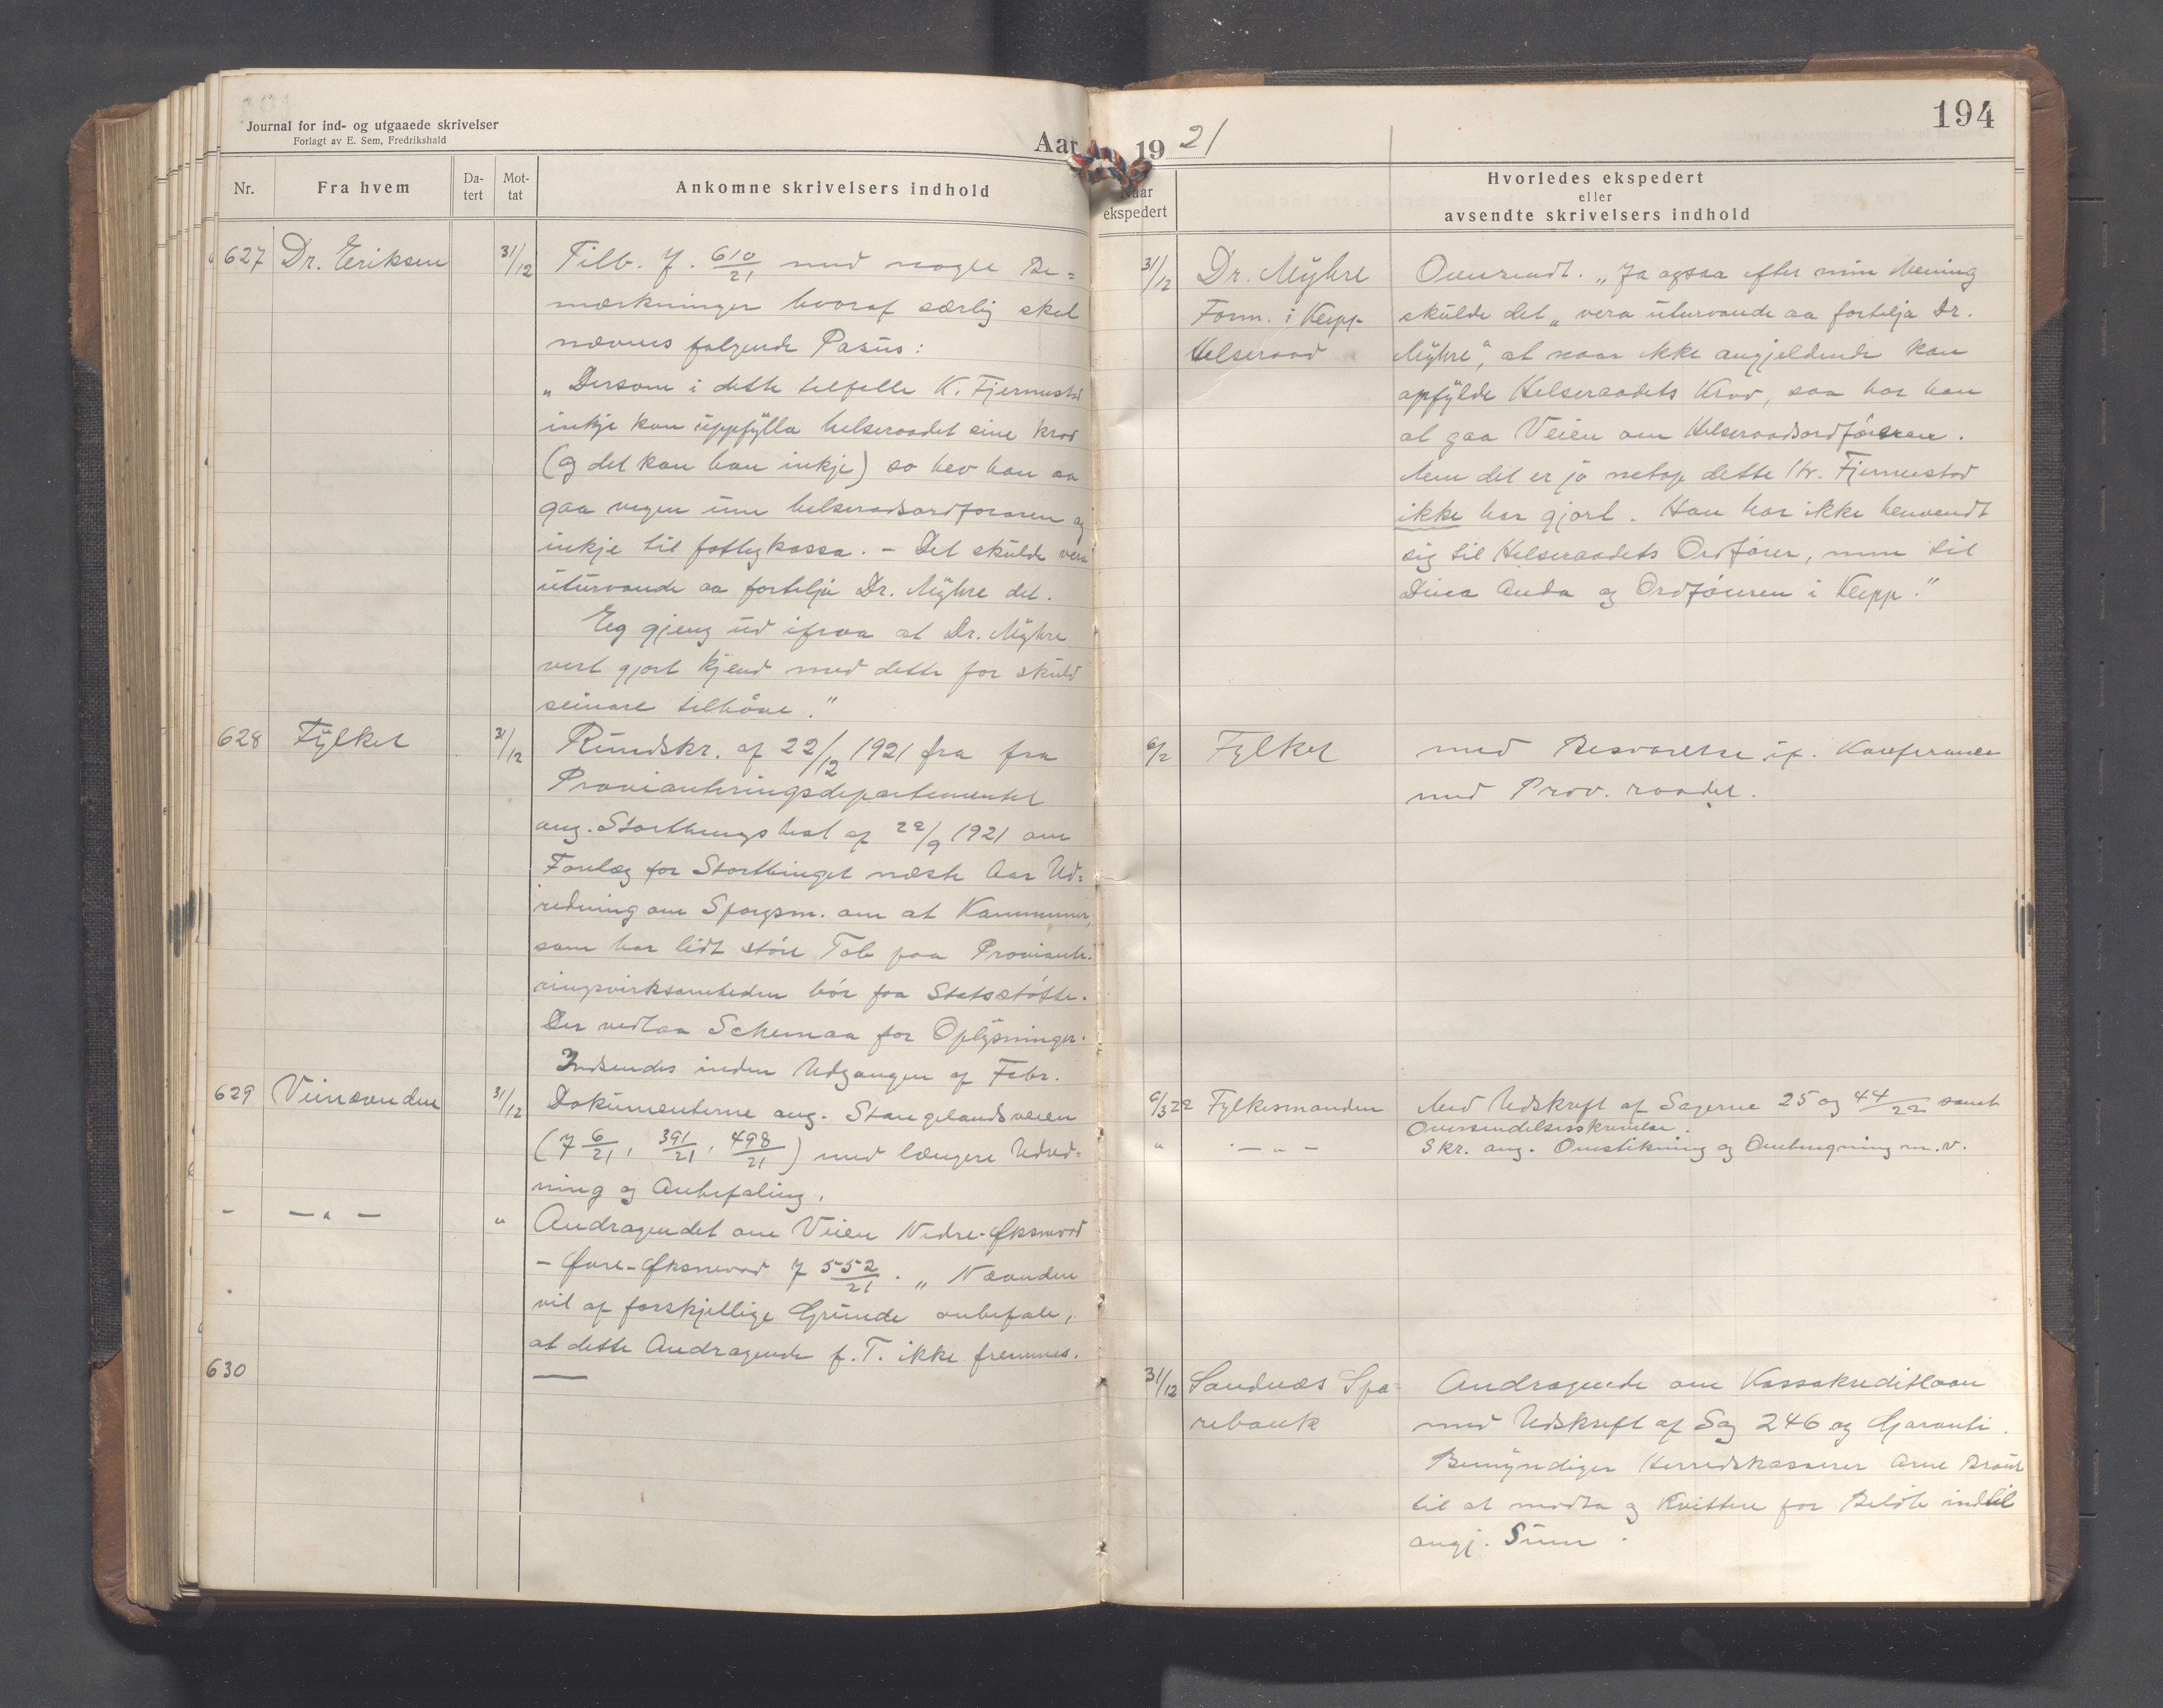 194
Journal for ind- og utgaaede skrivelser
Forlagt av E. Sem, Fredrikshald
Aar 1921
Nr.
Fra hvem
Da-
tert
Mot-
tat
Ankomne skrivelsers indhold
Naar
ekspedert
Hvorledes ekspedert
eller
avsendte skrivelsers indhold
627 Dr. Eriksen 31/12 Tilb. J. 610/21 med nogle Be=
mærkninger hvoraf særlig skal
nævnes følgende Pasus:
„Dersom i dette tilfelle K. Fjermestad
inkje kan uppfylla helseraadet sine krav
(og det kan han inkje) so hev han aa
gaa vegen um helseraadsordføraren og
inkje til fattigkassa. - Det skulde vera
uturvande aa fortelja Dr. Myhre det.
Eg gjeng ud ifraa at Dr. Myhre
vert gjort kjend med dette for skuld
seinare tilhøve."
31/12 Dr. Myhre
Form. i Klepp
Helseraad
Oversendt. „Ja ogsaa efter min Mening
skulde det „vera uturvande aa fortelja Dr.
Myhre", at naar ikke angjeldende kan
opfylde Helseraadets Krav, saa har han
at gaa Veien om Helseraadsordføreren.
Men det er jo netop dette Hr. Fjermestad
ikke har gjort. Han har ikke henvendt
sig til Helseraadets Ordfører, men til
Dina Anda og Ordføreren i Klepp."
628 Fylket 31/12 Rundskr. af 22/12 1921 fra fra
Provianteringsdepartementet
ang. Storthingsbesl. af 22/9 1921 om
Forelæg for Storthinget næste Aar Ud=
redning om Spørgsm. om at Kommuner,
som har lidt større Tab paa Proviante-
ringsvirksomheden bør faa Statsstøtte.
Der vedlaa Schemaa for Oplysninger.
Indsendes inden Udgangen af Febr.
6/2 Fylket
med Besvarelse if. Konferance
med Prov. raadet.
629 Veinævnden 31/12 Dokumenterne ang. Stangelandsveien
(J 6/21, 391/21, 498/21) med længere Udred=
ning og Anbefaling.
6/3 22 Fylkesmanden
Med Udskrift af Sagerne 25 og 44/22 samt
Oversendelsesskrivelse.
" -"- Skr. ang. Omstikning og Ombygning m.v.
- -"- " Andragendet om Veien Nedre-Øksnevad
- Øvre-Øksnevad J 552/21. „Nævnden
vil af forskjellige Grunde anbefale,
at dette Andragende f. T. ikke fremmes.
630 —
31/12 Sandnæs Spa=
rebank
Andragende om Kassakreditlaan
med Udskrift af Sag 246 og Garanti.
Bemyndiger Herredskasserer Arne
til at modta og Kvittere for Beløb indtil
angj. Sum.